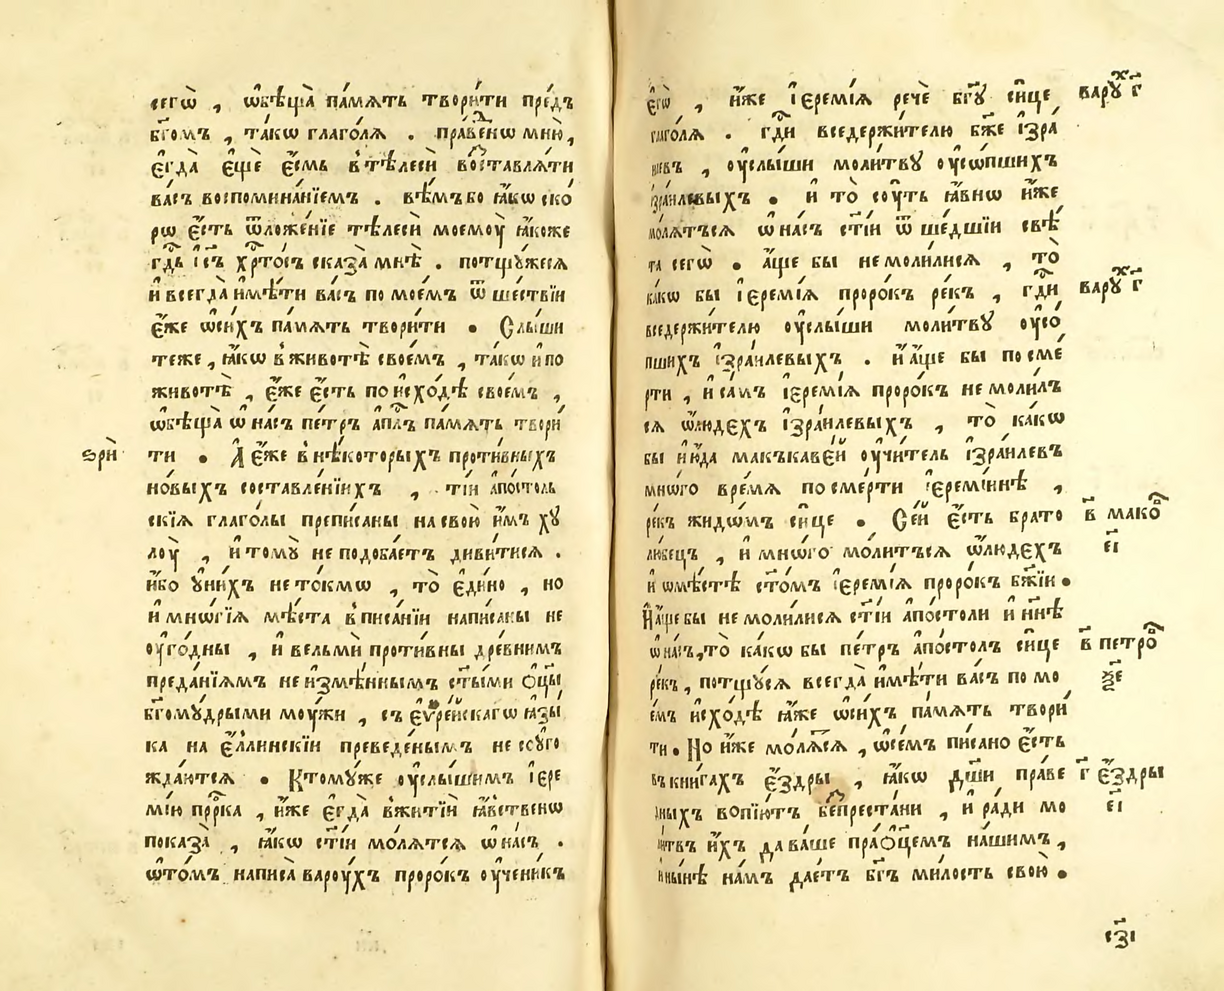 сегѡ̀ , ѡ҆бѣща̀ па́мѧть твори́ти пре́дъ
бг҃омъ , та́кѡ глаго́лѧ . пра́ведⷣнѡ мню̀ ,
є҆гда̀ є҆щѐ є҆́смь в тѣлесѝ воⷥставлѧ́ти
ва́съ воспомина́нїемъ . вѣ́мъ бо ꙗ҆́кѡ ско́
рѡ є҆́сть ѿложе́нїе тѣлесѝ моемоу̀ ꙗ҆́коже
гдⷭ҇ь і҆с҃ъ хрⷭ҇то́съ сказа̀ мнѣ̀ . потщꙋ́жесѧ
и҆ всегда̀ и҆мѣ́ти ва́съ по мое́мъ ѿ ше́ствїи
є҆́же ѡ҆ си́хъ па́мѧть твори́ти • Слы́ши
те же , ꙗ҆́кѡ в животѣ̀ свое́мъ , та́кѡ и҆ по
животѣ̀ , є҆́же є҆́сть по и҆схо́дѣ свое́мъ ,
ѡ҆бѣща̀ ѡ҆ на́съ пе́тръ а҆пⷭ҇лъ па́мѧть твори́
ѕрѝ
ти • А҆ є҆́же в нѣ́которыхъ проти́вныхъ
но́выхъ составле́нїихъ , тїѝ а҆по́столь
скїѧ глаго́лы препи́саны на свою̀ и҆́мъ хꙋ
лоу̀ , и҆ томꙋ̀ не подоба́етъ диви́тисѧ .
и҆́бо ᲂу҆ ни́хъ не то́кмѡ , то̀ є҆ди́но , но
и҆ мнѡ́гїѧ мѣ́ста в писа́нїи напи́саны не
оу҆го́дны , и҆ вельмѝ проти́вны дре́внимъ
преда́нїѧмъ не и҆змѣ́ннымъ ст҃ы́ми ѻ҆ц҃ы̀
бг҃омꙋ́дрыми моу́жи , съ є҆ѵре́йскагѡ ꙗ҆зы́
ка на є҆́ллинскїи преведе́нымъ не ссꙋго
жда́ютсѧ • К томꙋ́же оу҆слы́шимъ і҆ере
мі́ю прⷪ҇ро́ка , и҆́же є҆гда̀ в житїѝ ꙗ҆́вственѡ
показа̀ , ꙗ҆́кѡ ст҃і́и мо́лѧтсѧ ѡ҆ на́съ .
ѡ҆ то́мъ написа̀ вароу́хъ проро́къ оу҆чени́къ
є҆гѡ̀ , и҆́же і҆еремі́ѧ речѐ бг҃ꙋ си́це
варꙋⷯ г҃
глаго́лѧ . гдⷭ҇и вседержи́телю бж҃е і҆зра́
илевъ , оу҆слы́ши моли́твꙋ оу҆со́пшихъ
і҆зра́илевыхъ • и҆ то̀ соу́ть ꙗ҆́внѡ и҆́же
мо́лѧтъсѧ ѡ҆ на́съ ст҃і́и ѿ ше́дшїи свѣ́
та сегѡ̀ • а҆́ще бы не моли́лисѧ , то̀
ка́кѡ бы і҆еремі́ѧ проро́къ ре́къ , гдⷭ҇и
варꙋⷯ г҃
вседержи́телю оу҆слы́ши моли́твꙋ оу҆со́
пшихъ і҆зра́илевыхъ . и҆ а҆́ще бы по сме́
рти , и҆ са́мъ і҆еремі́ѧ проро́къ не моли́лъ
сѧ ѡ҆ лю́дехъ і҆зра́илевыхъ , то̀ ка́кѡ
бы и҆ ю҆́да макъкаве́й оу҆чи́тель і҆зра́илевъ
мно́го вре́мѧ по сме́рти і҆еремі́инѣ ,
ре́къ жидѡ́мъ си́це • Се́й є҆́сть брато
в҃ макоⷡ
лю́бецъ , и҆ мно́го мо́литъсѧ ѡ҆ лю́дехъ
є҃і
и҆ ѡ҆ мѣ́стѣ ст҃о́мъ і҆еремі́ѧ проро́къ бж҃їи •
И҆ а҆́ще бы не моли́лисѧ ст҃і́и а҆по́столи и҆ нн҃ѣ
ѡ҆ на́съ , то̀ ка́кѡ бы пе́тръ а҆по́столъ си́це
в҃ петроⷡ
ре́къ , потщꙋ́сѧ всегда̀ и҆мѣ́ти ва́съ по мо
ѯ҃е
е́мъ и҆схо́дѣ ꙗ҆́же ѡ҆ си́хъ па́мѧть твори́
ти • Но и҆́же мо́лѧⷮсѧ , ѡ҆ се́мъ пи́сано є҆́сть
въ кни́гахъ є҆́здры , ꙗ҆́кѡ дш҃и пра́ве
г҃ є҆́здры
дныхъ вопїю́тъ беⷥпреста́ни , и҆ ра́ди мо
є҃і
ли́твъ и҆́хъ да ва́ше праѻ҆ц҃емъ на́шимъ ,
и҆ ны́нѣ на́мъ дае́тъ бг҃ъ ми́лость свою̀ •
с҃зі